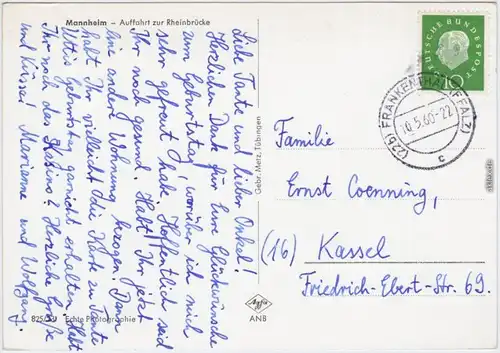 Mannheim – Auffahrt zur Rheinbrücke
Liebe Tante und lieber Onkel!
Herzlichen Dank für Eure Glückwünsche
zum Geburtstag, worüber ich mich
sehr gefreut habe. Hoffentlich seid
Ihr noch gesund. Habt Ihr jetzt
eine andere Wohnung bezogen? Dann
habt Ihr vielleicht die Karte zu Tante
Geburtstag garnicht erhalten. Habt
Ihr noch das Herzliche Grüße
und Küsse! Marianne und Wolfgang.
Echte Photographie
Gebr. Metz, Tübingen
Agfa
ANB
DEUTSCHE BUNDESPOST
10
(22b) FRANKENTHAL (PFALZ)
10.5.60-22
c
Familie
Ernst Coenning,
(16) Kassel
Friedrich-Ebert-Str. 69.